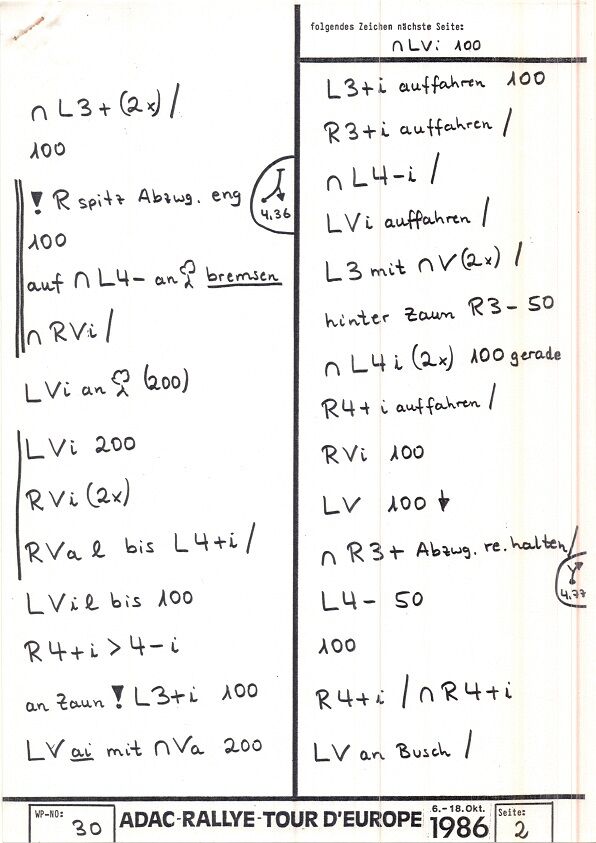 ∩ L3+ (2x) /
100
! R spitz Abzwg. eng
4.36
100
auf ∩ L4- an bremsen
∩ RVi /
LVi an (200)
LVi 200
RVi (2x)
RVa l bis L4+i /
LVil bis 100
R4+i > 4-i
an Zaun ! L3+i 100
LV ai mit ∩Va 200
folgendes Zeichen nächste Seite:
∩LVi 100
L3+i auffahren 100
R3+i auffahren /
∩ L4-i /
LVi auffahren /
L3 mit ∩V(2x) /
hinter Zaun R3- 50
∩ L4i (2x) 100 gerade
R4+i auffahren /
RVi 100
LV 100 ↓
∩ R3+ Abzwg. re. halten /
4.77
L4- 50
100
R4+i / ∩R4+i
LV an Busch /
WP-NO: 30
ADAC-RALLYE-TOUR D'EUROPE 6.-18.Okt. 1986
Seite: 2